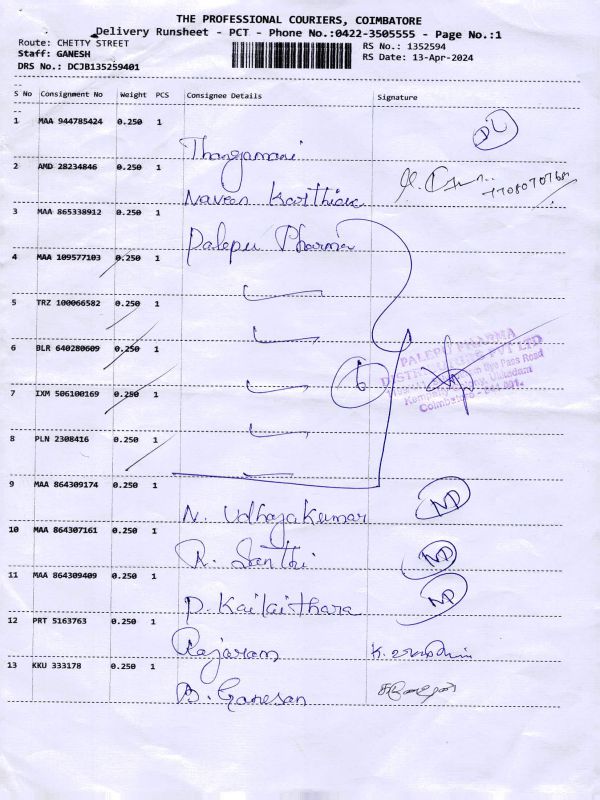 THE PROFESSIONAL COURIERS, COIMBATORE
Delivery Runsheet - PCT - Phone No.:0422-3505555 - Page No.:1
Route: CHETTY STREET
RS No.: 1352594
Staff: GANESH
RS Date: 13-Apr-2024
DRS No.: DCJB135259401
S No Consignment No Weight PCS Consignee Details Signature
1 MAA 944785424 0.250 1
DL
Thangamani
2 AMD 28234846 0.250 1
Naveen Karthick
3 MAA 865338912 0.250 1
Palepu Pharma
4 MAA 109577103 0.250 1
5 TRZ 100066582 0.250 1
6 BLR 640280609 0.250 1
PALEPU PHARMA
DISTRIBUTORS PVT LTD
6
7 IXM 506100169 0.250 1
Coimbatore - 641 001.
8 PLN 2308416 0.250 1
9 MAA 864309174 0.250 1
ND
N. Udhayakumar
10 MAA 864307161 0.250 1
ND
R. Santhi
11 MAA 864309409 0.250 1
ND
P. Kailaithara
12 PRT 5163763 0.250 1
Rajaram
13 KKU 333178 0.250 1
B. Ganesan